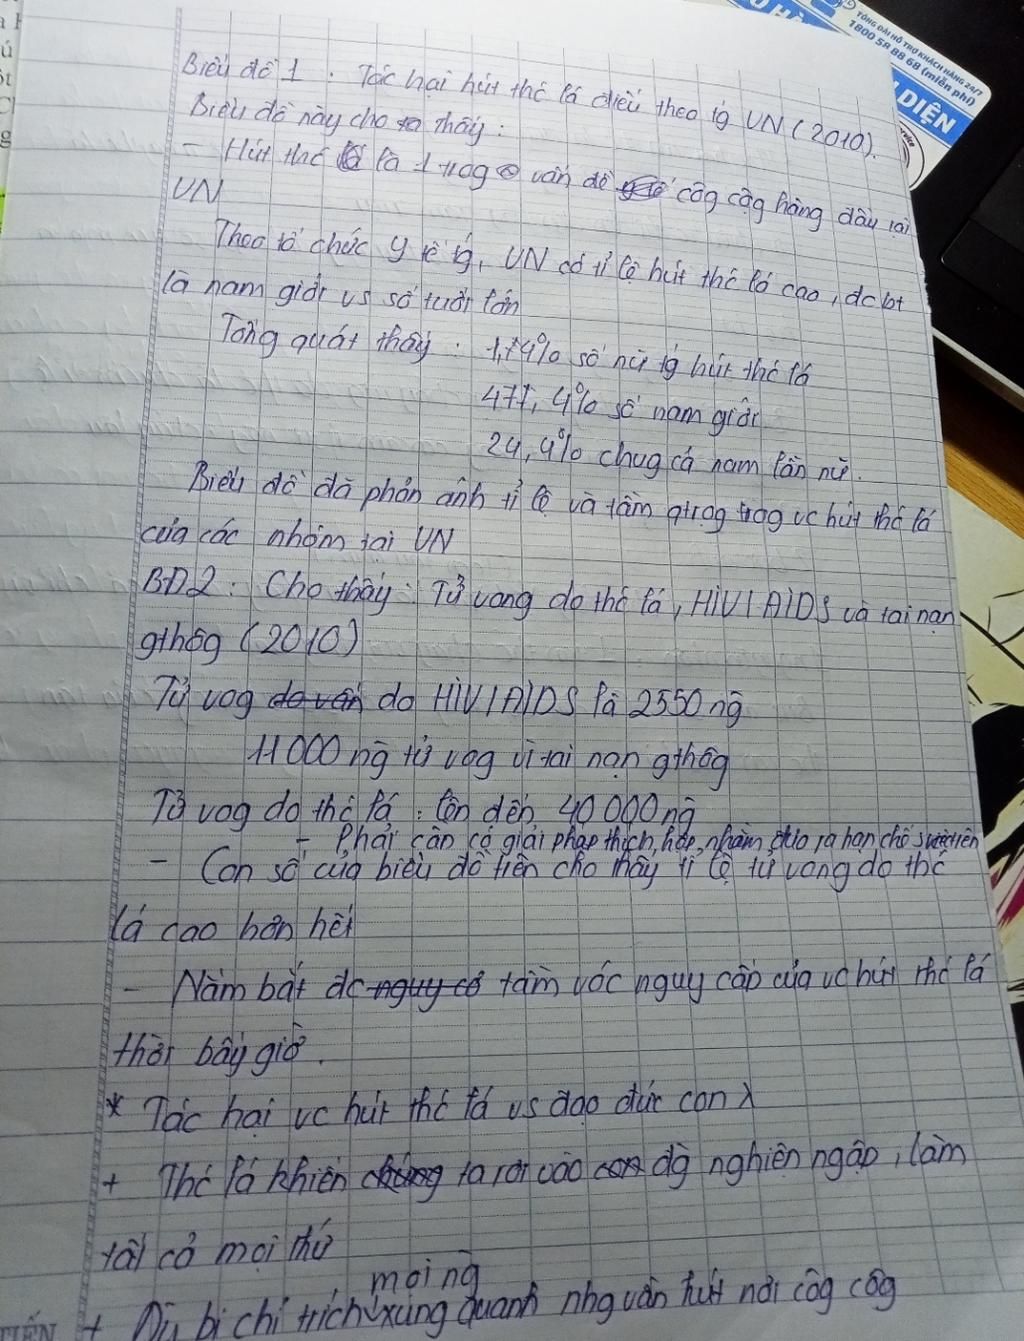 TỔNG ĐÀI HỖ TRỢ KHÁCH HÀNG 24/7
1800 58 88 68 (miễn phí)
DIỆN
Biểu đồ 1 . Tác hại hút thć lá điếu theo tg VN (2010).
Biểu đồ này cho thấy :
- Hút thć lá là 1 trog vấn đề côg cộg hàng đầu tại
VN
Theo tổ chức y tế tg, VN có tỉ lệ hút thć lá cao, dc bt
là nam giới vs số tuổi lớn
Tổng quát thấy : 1,4% số nữ tg hút thć lá
477, 4% số nam giới
24, 4% chug cả nam lẫn nữ.
Biểu đồ đã phản ánh tỉ lệ và tầm qtrọg trog vc hút thć lá
của các nhóm tại VN
BĐ2 : Cho thấy : Tử vong do thć lá, HIV/AIDS và tai nạn
gthôg (2010)
Tử vog do vấn do HIV/AIDS là 2550 ng̃
11000 ng̃ tử vog vì tai nạn gthôg
Tử vog do thć lá : lên đến 40 000 ng̃
- Phải cần có giải pháp thích hợp nhằm đưa ra hạn chế
- Con số của biểu đồ trên cho thấy tỉ lệ tử vong do thć
lá cao hơn hết
- Nắm bắt dc nguy cơ tầm vóc nguy cấp của vc hút thć lá
thời bây giờ.
* Tác hại vc hút thć lá vs đạo đức con λ
+ Thć lá khiến chúng ta rơi vào con đg̀ nghiện ngập, làm
tất cả mọi thứ
mọi ng̃
+ Dù bị chỉ trích xung quanh nhg vẫn hút nơi côg côg
TIẾN